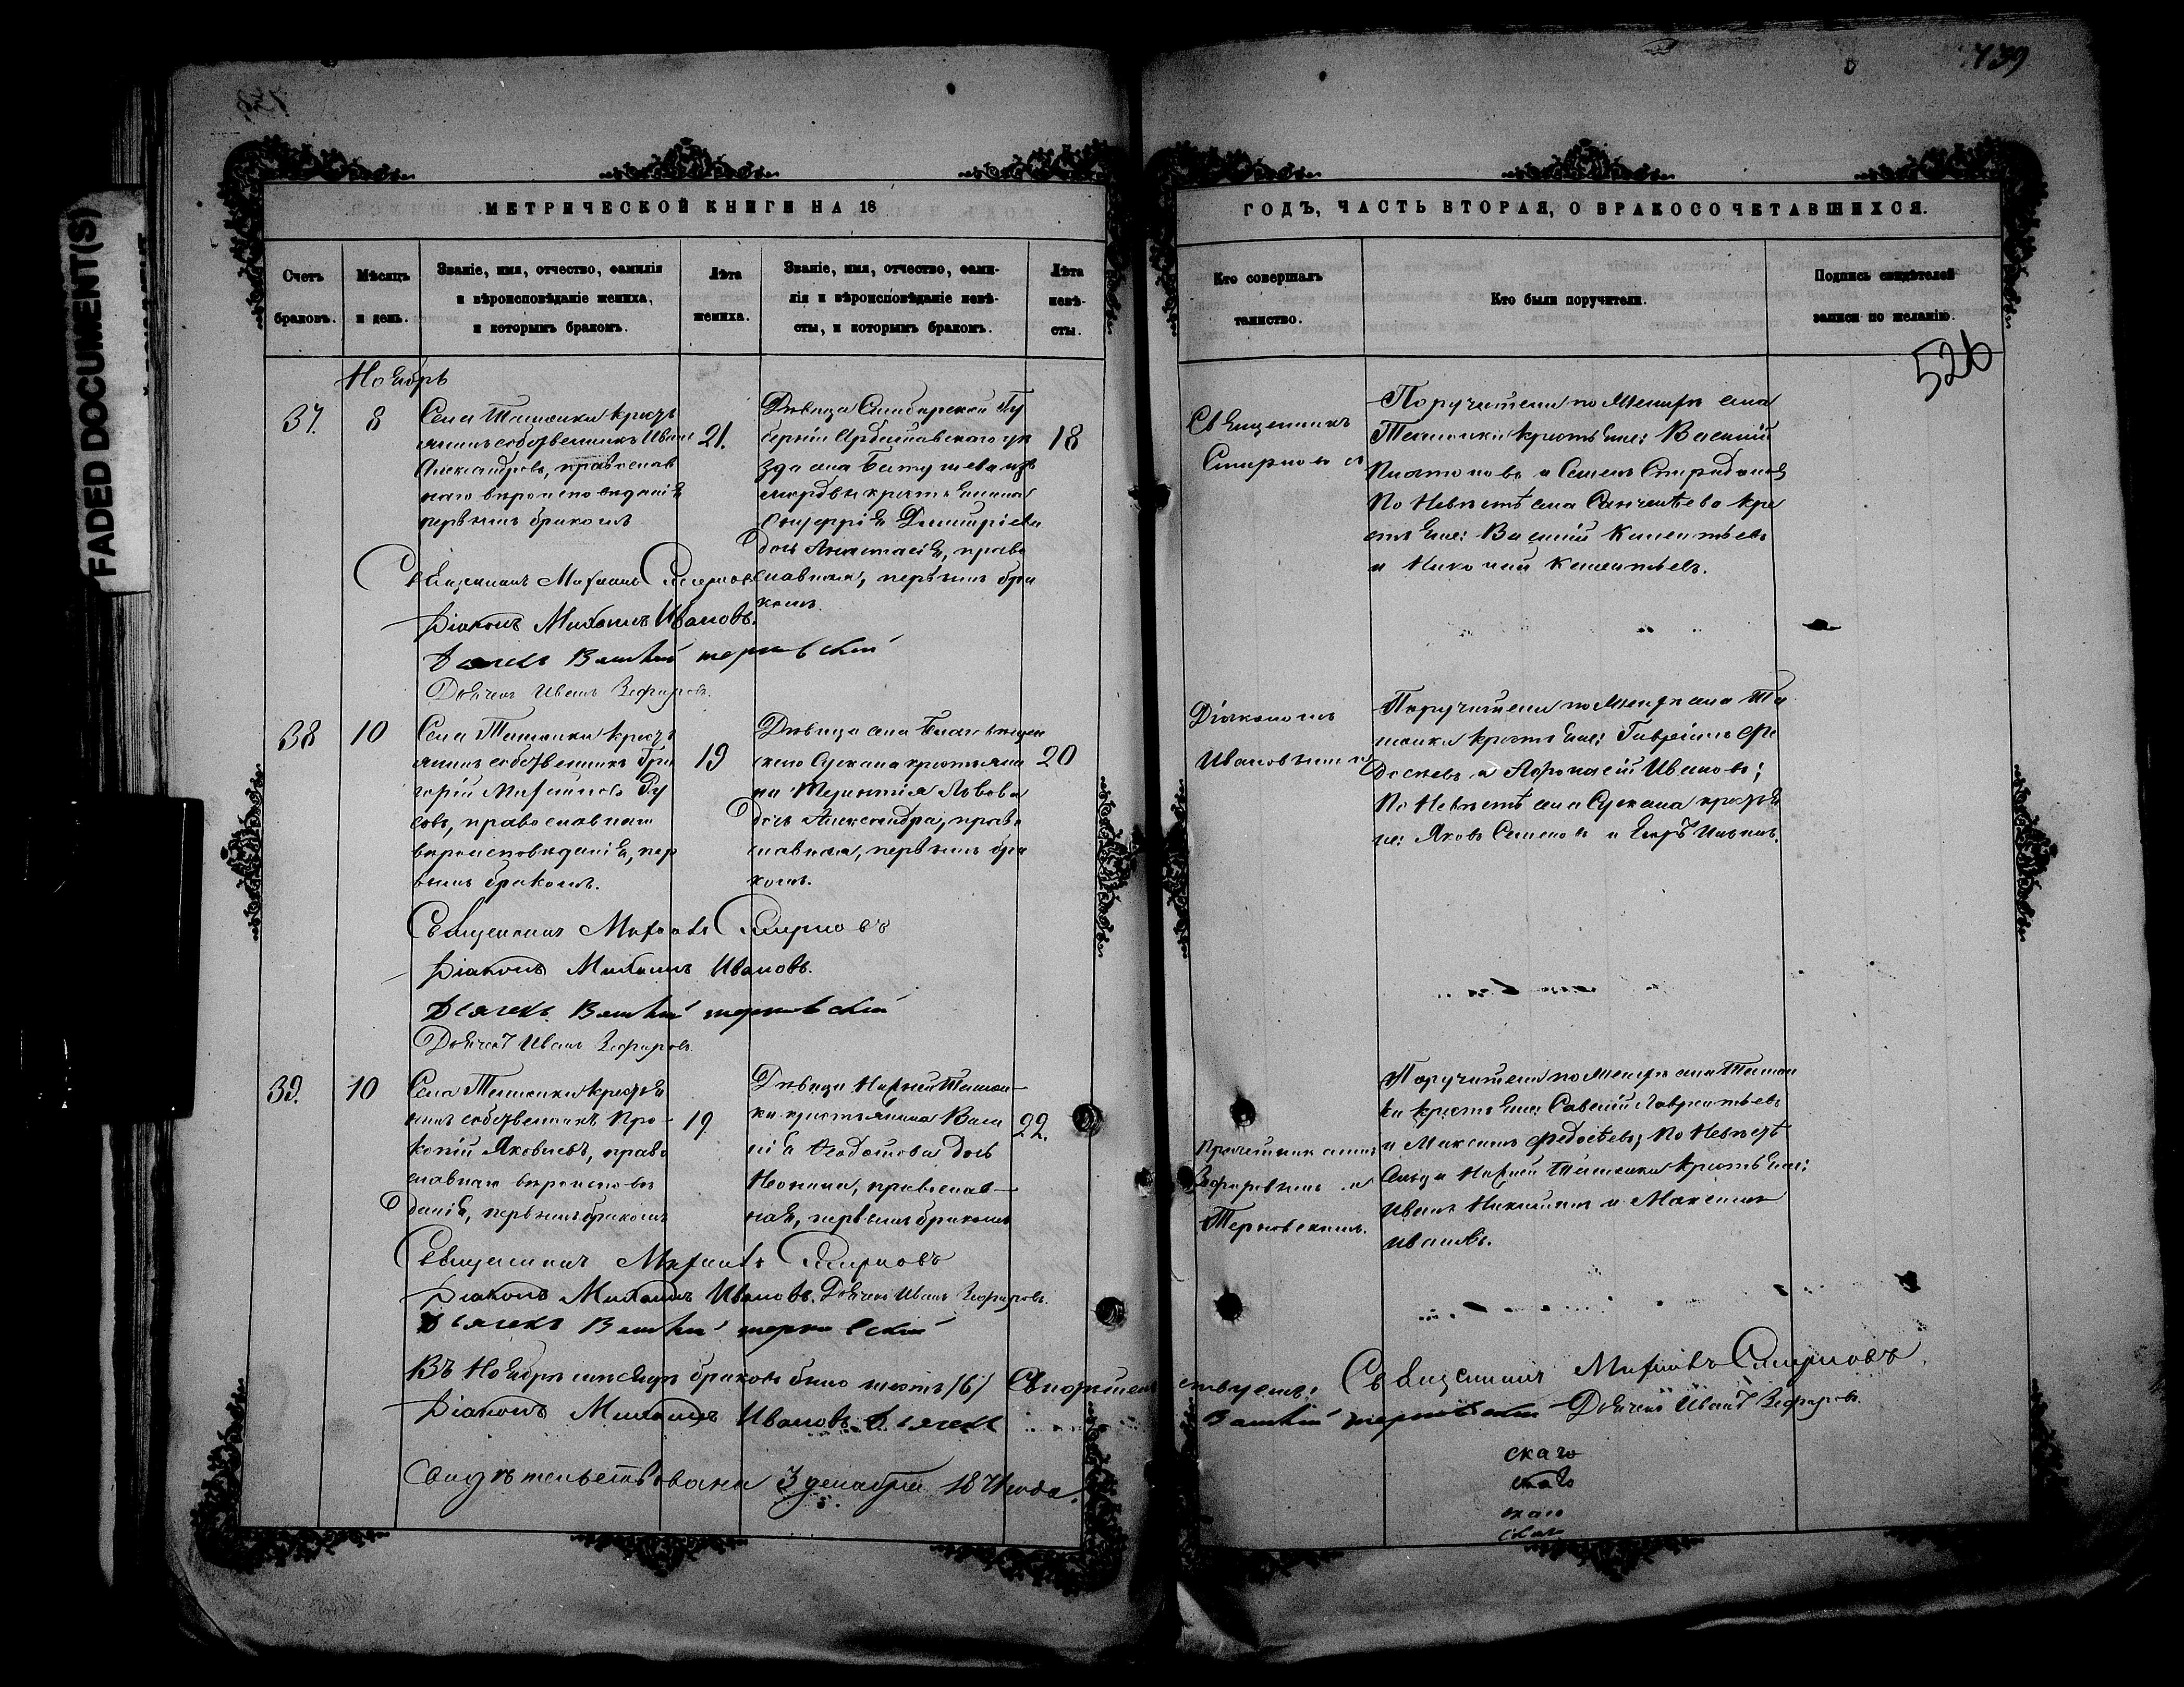 FADED DOCUMENT(S)
739
МЕТРИЧЕСКОЙ КНИГИ НА 18
ГОДЪ, ЧАСТЬ ВТОРАЯ, О БРАКОСОЧЕТАВШИХСЯ.
Счетъ браковъ.
Мѣсяцъ и день.
Званіе, имя, отчество, фамилія
и вѣроисповѣданіе жениха,
и которымъ бракомъ.
Лѣта
жениха.
Званіе, имя, отчество, фами-
лія и вѣроисповѣданіе невѣ-
сты, и которымъ бракомъ.
Лѣта
невѣ-
сты.
Кто совершалъ
таинство.
Кто были поручители.
Подпись свидѣтелей
записи по желанію.
526
Ноябрь
37.
8
Села Ташолки кресть
янинъ собственникъ Иванъ
Александровъ, православ
наго вѣроисповеданія
первымъ бракомъ
21.
Дѣвица Симбирской Гу
берніи Ардатовскаго уѣ
зда села изъ
мордвы крестьянина
Димитріева
дочь Анастасія, право
славная, первымъ бра
комъ.
18
Священникъ
Смирновъ
Поручители по Женихѣ села
Ташолки крестьяне: Василій
Платоновъ и Семенъ Спиридоновъ
По Невѣстѣ села Санчелѣева кре
стьяне: Василій
и Николай
Священникъ Михаилъ Смирновъ
Діаконъ Михаилъ Ивановъ.
Дьячекъ Василий терновский
Дьячекъ Иванъ Зефировъ.
38
10
Села Ташолки кресть
янинъ собственникъ Гри
горій Михайловъ Гу
севъ, православнаго
вѣроисповѣданія, пер
вымъ бракомъ.
19
Дѣвица села
скаго Сускана крестьяни
на Терентія Львова
дочь Александра, право
славная, первымъ бра
комъ.
20
Діакономъ
Ивановымъ
Поручители по Женихѣ села Та
шолки крестьяне: Гавріилъ Фе
досѣевъ и Афонасій Ивановъ;
По Невѣстѣ села Сускана крестья
не: Яковъ Семеновъ и Егоръ
Священникъ Михаилъ Смирновъ
Діаконъ Михаилъ Ивановъ.
Дьячекъ Василий терновский
Дьячекъ Иванъ Зефировъ.
39.
10
Села Ташолки крестья
нинъ собственникъ Про-
копій Яковлевъ, право
славнаго вѣроисповѣ
данія, первымъ бракомъ
19
Дѣвица Нижней Ташол-
ки крестьянина Васи
лія Федотова дочь
Неонила, православ-
ная, первымъ бракомъ
22.
Причетниками
Зефировымъ и
Терновскимъ.
Поручители по Женихѣ села Ташол
ки крестьяне: Савелій Лаврентьевъ
и Максимъ Федосѣевъ; По Невѣстѣ
Сельца Нижней Ташолки крестьяне:
Иванъ Никитинъ и Максимъ
Ивановъ.
Священникъ Михаилъ Смирновъ
Діаконъ Михаилъ Ивановъ. Дьячекъ Иванъ Зефировъ.
Дьячекъ Василий терновский
Въ Ноябрѣ мѣсяцѣ браковъ было шесть /6/ Свидѣтельствуемъ: Священникъ Михаилъ Смирновъ,
Діаконъ Михаилъ Ивановъ. Дьячекъ Василий терновский Дьячекъ Иванъ Зефировъ.
скаго
скаго
скаго
скаго
Свидѣтельствована 3 декабря 1871 года.